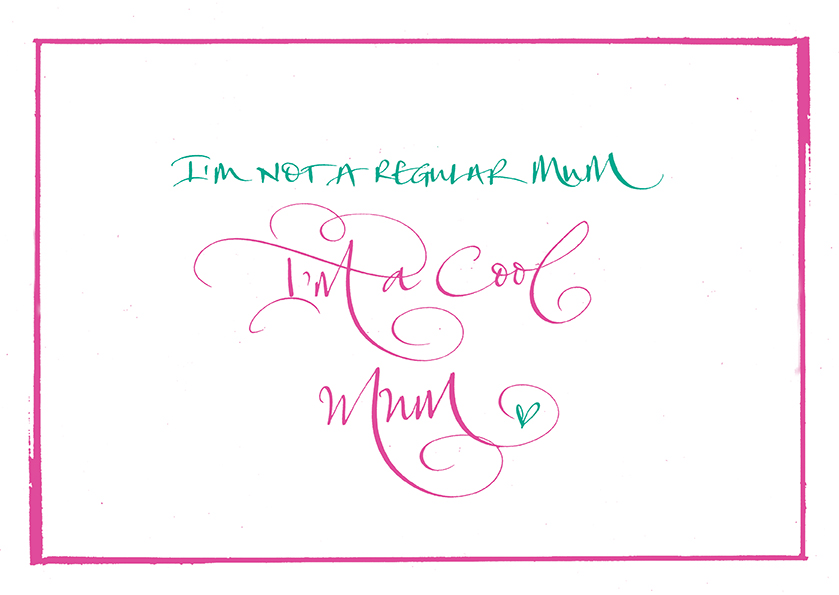 I'M NOT A REGULAR MUM
I'm a Cool
Mum